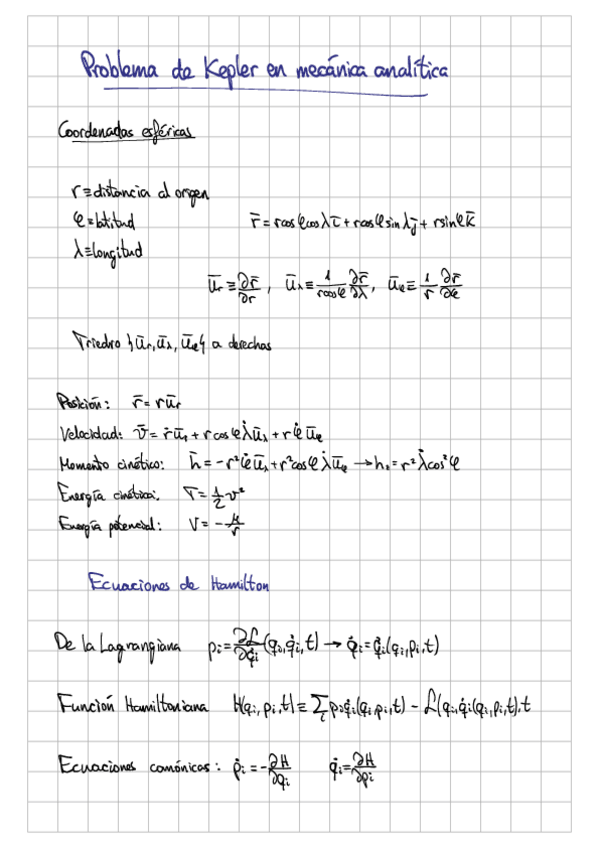 Problema de Kepler en mecánica analítica
Coordenadas esféricas
r ≡ distancia al origen
φ ≡ latitud r̄ = rcosφcosλ ī + rcosφ sinλ j̄ + rsinφ k̄
λ ≡ longitud
ūr ≡ ∂r̄/∂r , ūλ ≡ 1/(rcosφ) ∂r̄/∂λ , ūφ ≡ 1/r ∂r̄/∂φ
Triedro {ūr, ūλ, ūφ} a derechas
Posición: r̄ = rūr
Velocidad: v̄ = ṙūr + rcosφ λ̇ūλ + rφ̇ūφ
Momento cinético: h̄ = -r²φ̇ūλ + r²cosφ λ̇ūφ → hz = r²λ̇cos²φ
Energía cinética: T = 1/2 v²
Energía potencial: V = -μ/r
Ecuaciones de Hamilton
De la Lagrangiana pi = ∂ℒ/∂q̇i (qi, q̇i, t) → q̇i = q̇i(qi, pi, t)
Función Hamiltoniana H(qi, pi, t) ≡ Σi pi q̇i(qi, pi, t) - ℒ(qi, q̇i(qi, pi, t), t
Ecuaciones canónicas: ṗi = -∂H/∂qi q̇i = ∂H/∂pi